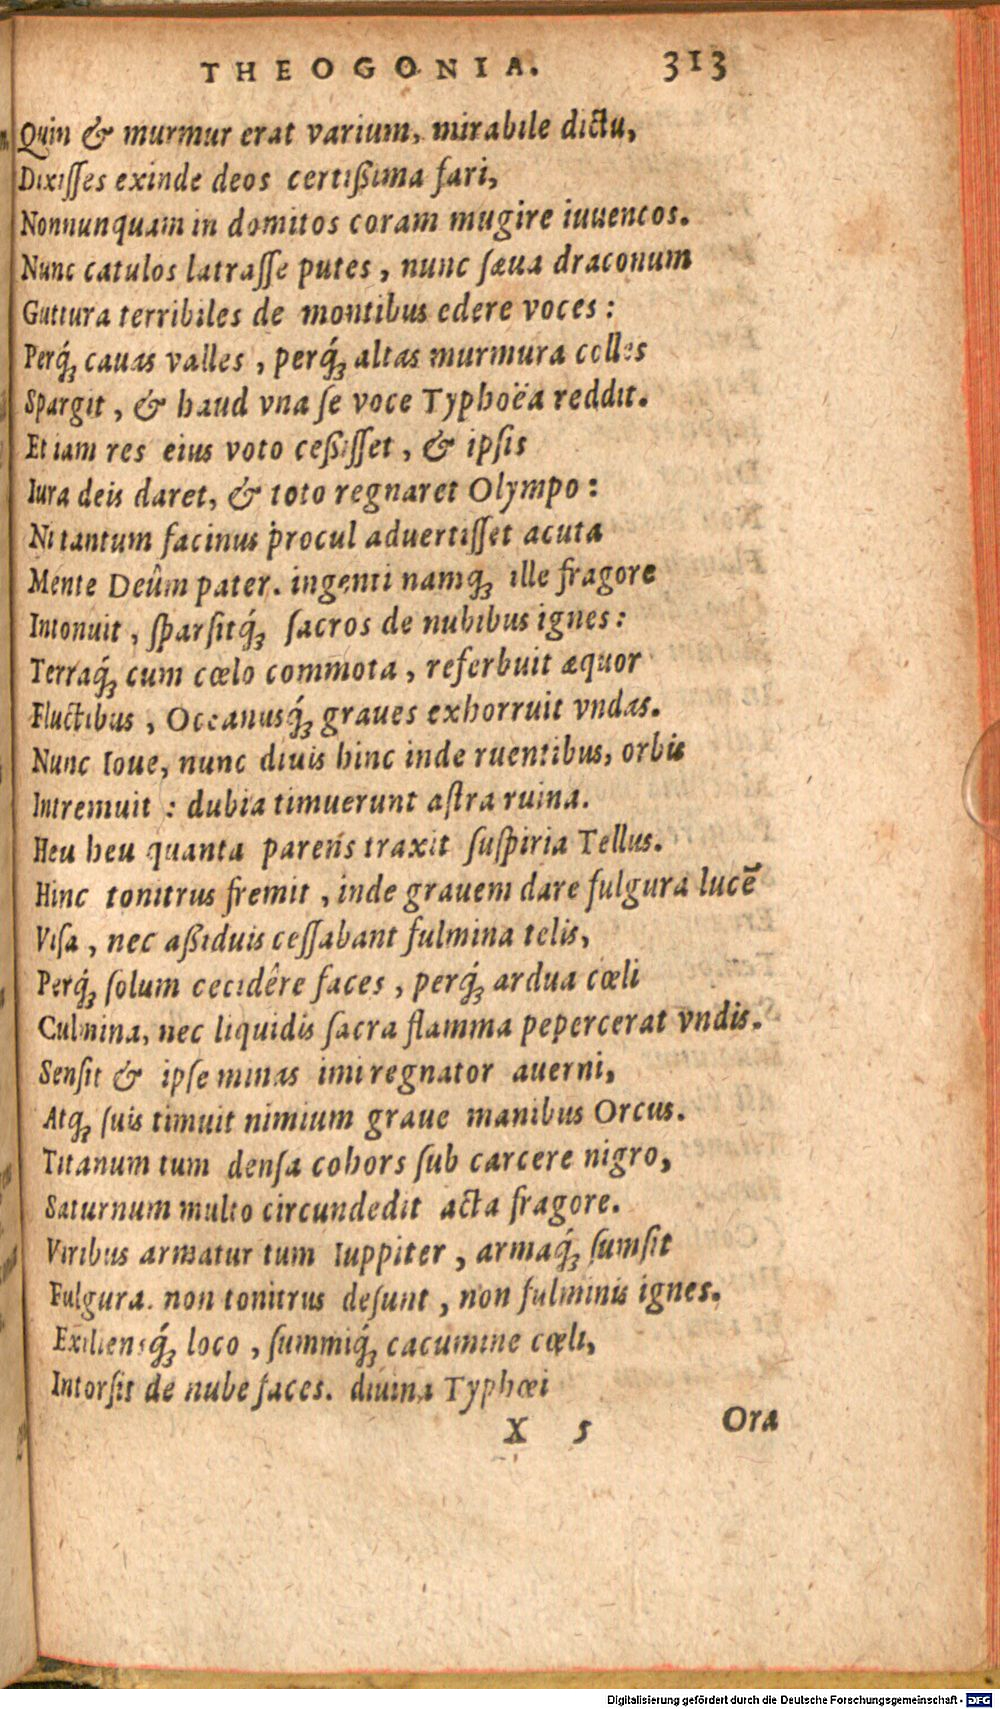 THEOGONIA. 313
Quin & murmur erat varium, mirabile dictu,
Dixiſſes exinde deos certißima fari,
Nonnunquam in domitos coram mugire iuuencos.
Nunc catulos latraſſe putes, nunc ſæua draconum
Guttura terribiles de montibus edere voces:
Perq́ꝫ cauas valles, perq́ꝫ altas murmura colles
Spargit, & haud vna ſe voce Typhoëa reddit.
Et iam res eius voto ceßiſſet, & ipſis
Iura deis daret, & toto regnaret Olympo:
Ni tantum facinus procul aduertiſſet acuta
Mente Deûm pater. ingenti namqꝫ ille fragore
Intonuit, ſparſitq́ꝫ ſacros de nubibus ignes:
Terraq́ꝫ cum cœlo commota, referbuit æquor
Fluctibus, Oceanusq́ꝫ graues exhorruit vndas.
Nunc Ioue, nunc diuis hinc inde ruentibus, orbis
Intremuit: dubia timuerunt aſtra ruina.
Heu heu quanta parens traxit ſuſpiria Tellus.
Hinc tonitrus fremit, inde grauem dare fulgura lucẽ
Viſa, nec aßiduis ceſſabant fulmina telis,
Perq́ꝫ ſolum cecidêre faces, perq́ꝫ ardua cœli
Culmina, nec liquidis ſacra flamma pepercerat vndis.
Senſit & ipſe minas imi regnator auerni,
Atqꝫ ſuis timuit nimium graue manibus Orcus.
Titanum tum denſa cohors ſub carcere nigro,
Saturnum multo circundedit acta fragore.
Viribus armatur tum Iuppiter, armaq́ꝫ ſumſit
Fulgura. non tonitrus deſunt, non fulminis ignes.
Exiliensq́ꝫ loco, ſummiq́ꝫ cacumine cœli,
Intorſit de nube faces. diuina Typhœi
X 5 Ora
Digitalisierung gefördert durch die Deutsche Forschungsgemeinschaft - DFG